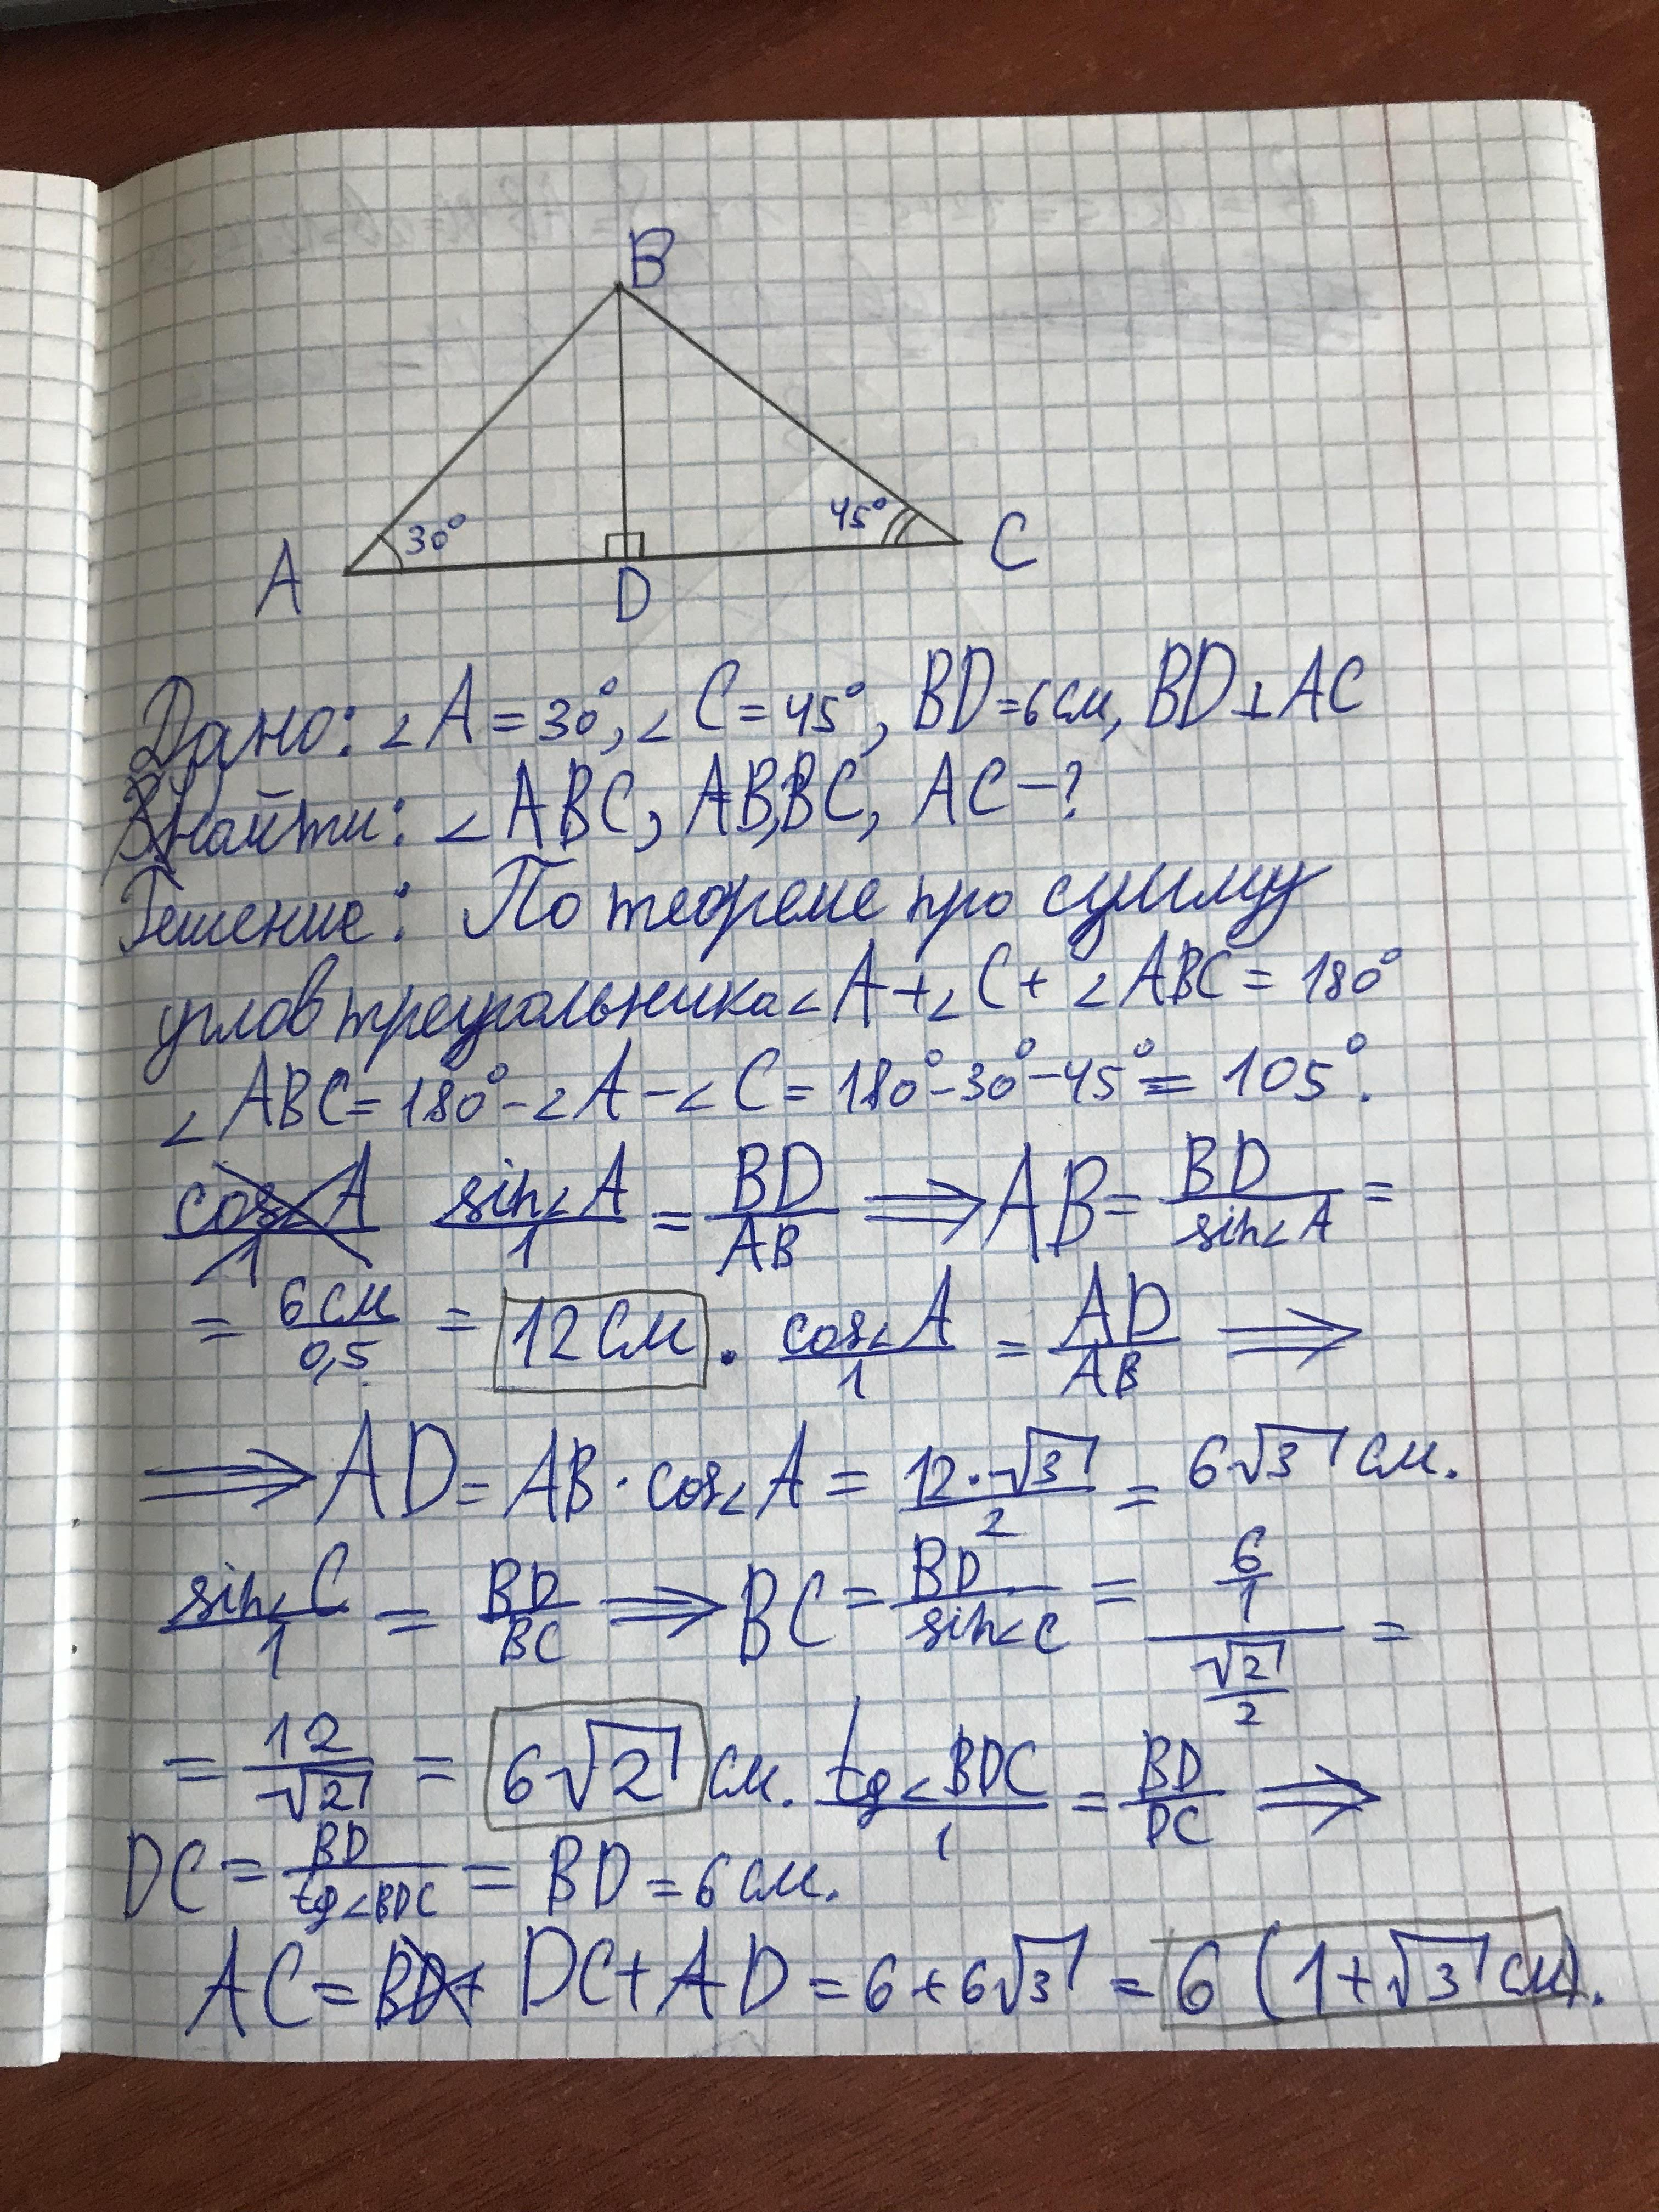 B
30° 45°
A D C
Дано: ∠A = 30°, ∠C = 45°, BD = 6 см, BD ⊥ AC
найти: ∠ABC, AB, BC, AC – ?
Решение: По теореме про сумму
углов треугольника ∠A + ∠C + ∠ABC = 180°
∠ABC = 180° - ∠A - ∠C = 180° - 30° - 45° = 105°.
cos∠A/1 sin∠A/1 = BD/AB ⟹ AB = BD/sin∠A =
= 6 см/0,5 = 12 см. cos∠A/1 = AD/AB ⟹
⟹ AD = AB · cos∠A = 12·√3/2 = 6√3 см.
sin∠C/1 = BD/BC ⟹ BC = BD/sin∠C = 6/1 / √2/2 =
= 12/√2 = 6√2 см. tg∠BDC/1 = BD/DC ⟹
DC = BD/tg∠BDC = BD = 6 см.
AC = BD + DC + AD = 6 + 6√3 = 6 (1 + √3 см).